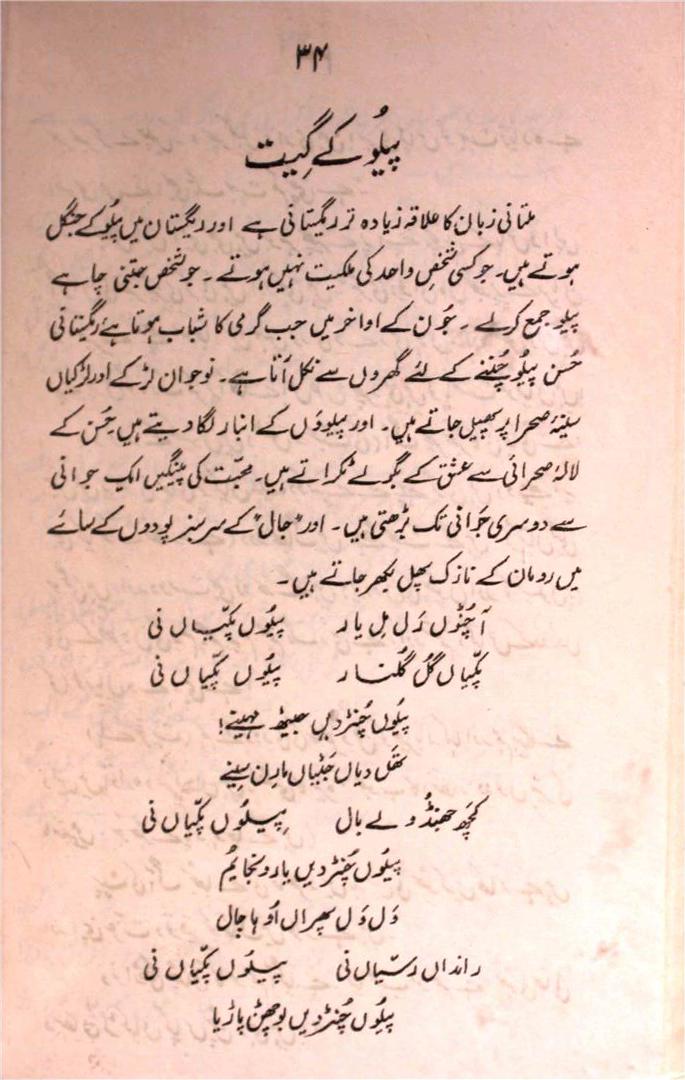 ۳۴
پیلُو کے گیت
ملتانی زبان کا علاقہ زیادہ تر ریگستانی ہے اور ریگستان میں پیلُو کے جنگل
ہوتے ہیں۔ جو کسی شخصِ واحد کی ملکیت نہیں ہوتے۔ جو شخص جتنی چاہے
پیلو جمع کر لے۔ جُون کے اواخر میں جب گرمی کا شباب ہوتا ہے ریگستانی
حُسن پیلُو چُننے کے لئے گھروں سے نکل آتا ہے۔ نوجوان لڑکے اور لڑکیاں
سینۂ صحرا پر پھیل جاتے ہیں۔ اور پیلوؤں کے انبار لگا دیتے ہیں حُسن کے
لالۂ صحرائی سے عشق کے بگولے ٹکراتے ہیں۔ محبّت کی پینگیں ایک جوانی
سے دوسری جوانی تک بڑھتی ہیں۔ اور "جال" کے سرسبز پودوں کے سائے
میں رومان کے نازک پھل بکھر جاتے ہیں۔
آ چُنوں رَل مِل یار پیلُوں پکّیاں نی
پکّیاں گُل گُلنار پیلُوں پکّیاں نی
پیلُوں چُنڑدیں جیٹھ مہینے!
تھَل دیاں جَٹیاں مارن سینے
کچھ جھنڈولے بال پیلُوں پکّیاں نی
پیلُوں چُنڑدیں یار ونجایُم
وَل وَل پھراں اُوہا جال
رانداں رسّیاں نی پیلُوں پکّیاں نی
پیلُوں چُنڑدیں بوچھن پاڑیا